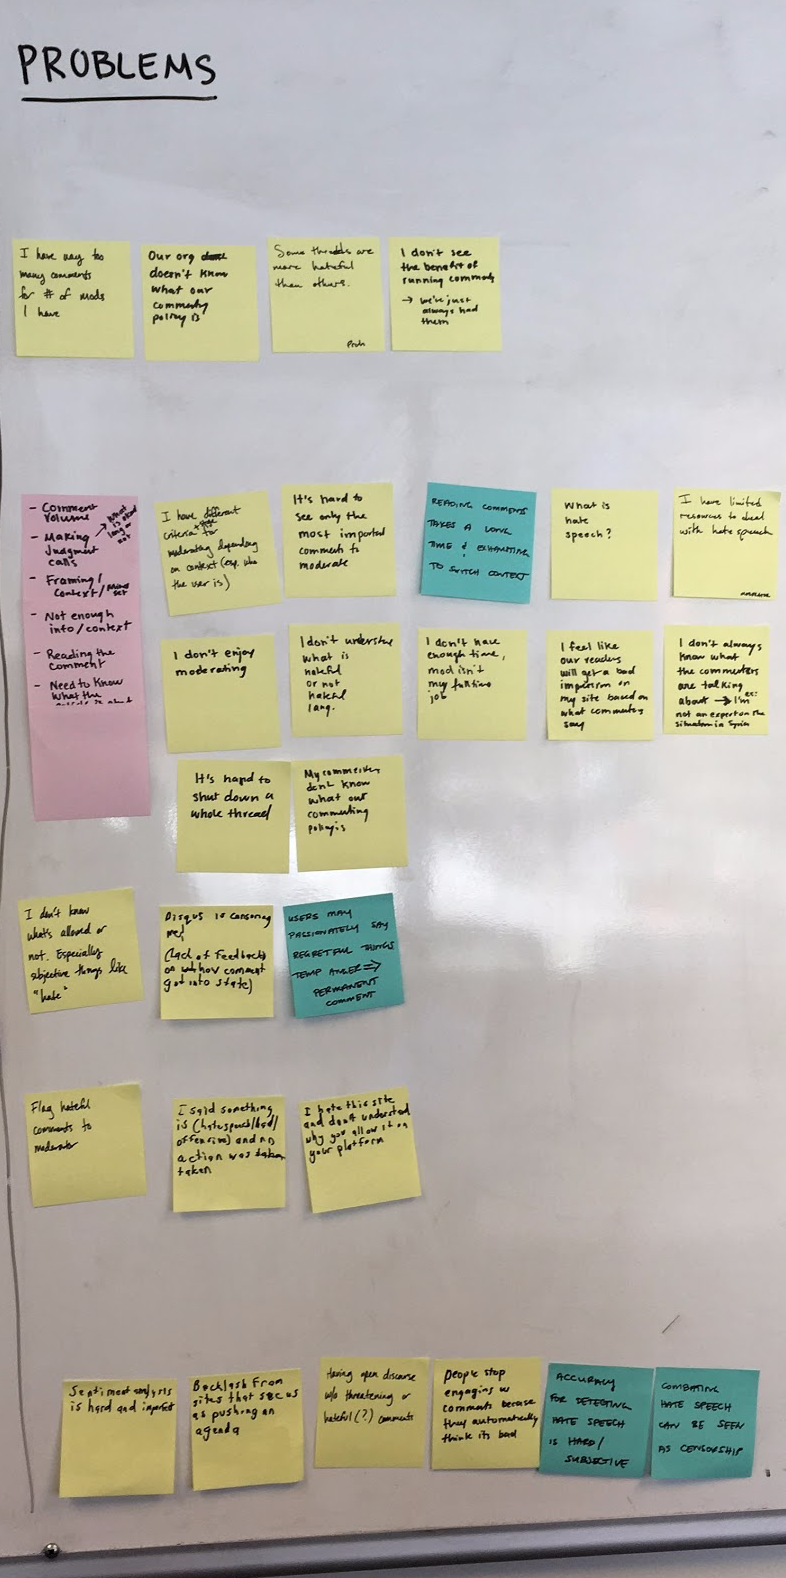 PROBLEMS
I have way too
many comments
for # of mods
I have
Our org
doesn't know
what our
commenting
policy is
Some threads are
more hateful
than others.
I don't see
the benefit of
running comments
→ we've just
always had
them
- Comment
volume
- Making → what
Judgment is hateful
calls lang or
not
- Framing/
context/mind
set
- Not enough
info/context
- Reading the
comment
- Need to know
what the
article is about
I have different
criteria for
moderating depending
on context (exp. who
the user is)
It's hard to
see only the
most important
comments to
moderate
READING COMMENTS
TAKES A LONG
TIME & EXHAUSTING
TO SWITCH CONTEXT
What is
hate
speech?
I have limited
resources to deal
with hate speech
I don't enjoy
moderating
I don't understand
what is
hateful
or not
hateful
lang.
I don't have
enough time,
mod isn't
my fulltime
job
I feel like
our readers
will get a bad
impression on
my site based on
what commenters
say
I don't always
know what
the commenters
are talking
about → ex: I'm
not an expert on the
situation in Syria
It's hard to
shut down a
whole thread
My commenters
don't know
what our
commenting
policy is
I don't know
what's allowed or
not. Especially
subjective things like
"hate"
Disqus is censoring
me!
(lack of feedback
on why/how comment
got into state)
USERS MAY
PASSIONATELY SAY
REGRETFUL THINGS
TEMP ANGER ⇒
PERMANENT
COMMENT
Flag hateful
comments to
moderator
I said something
is (hatespeech/bad/
offensive) and no
action was taken
taken
I hate this site
and don't understand
why you allow it on
your platform
Sentiment analysis
is hard and imperfect
Backlash from
sites that see us
as pushing an
agenda
Having open discourse
w/o threatening or
hateful(?) comments
people stop
engaging w
comments because
they automatically
think its bad
ACCURACY
FOR DETECTING
HATE SPEECH
IS HARD/
SUBJECTIVE
COMBATING
HATE SPEECH
CAN BE SEEN
AS CENSORSHIP